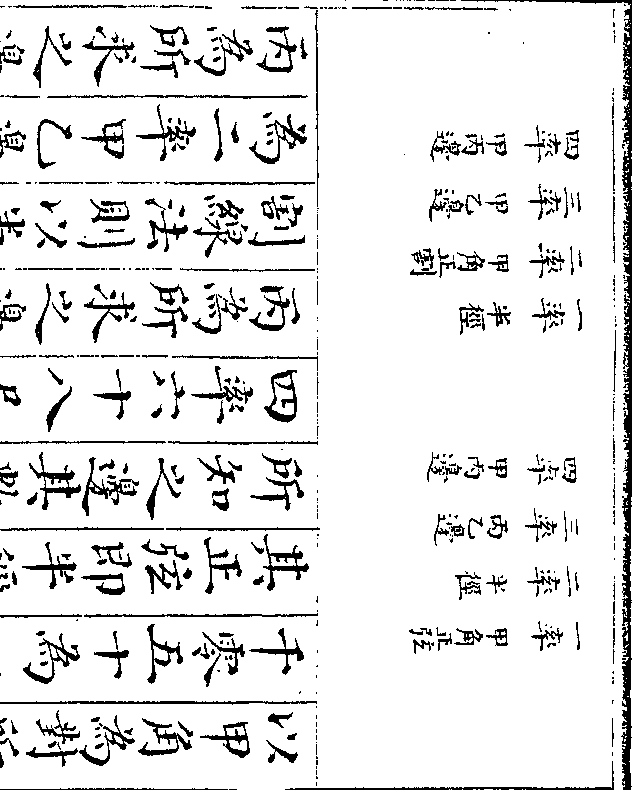 一率 甲角正弦
二率 半徑
三率 丙乙邊
四率 甲丙邊
一率 半徑
二率 甲角正割
三率 甲乙邊
四率 甲丙邊
以甲角為對所
千零五十為
其正弦即半徑
所知之邊其
四率六十八
丙為所求之邊
割線法則以半
為二率甲乙邊
丙為所求之邊